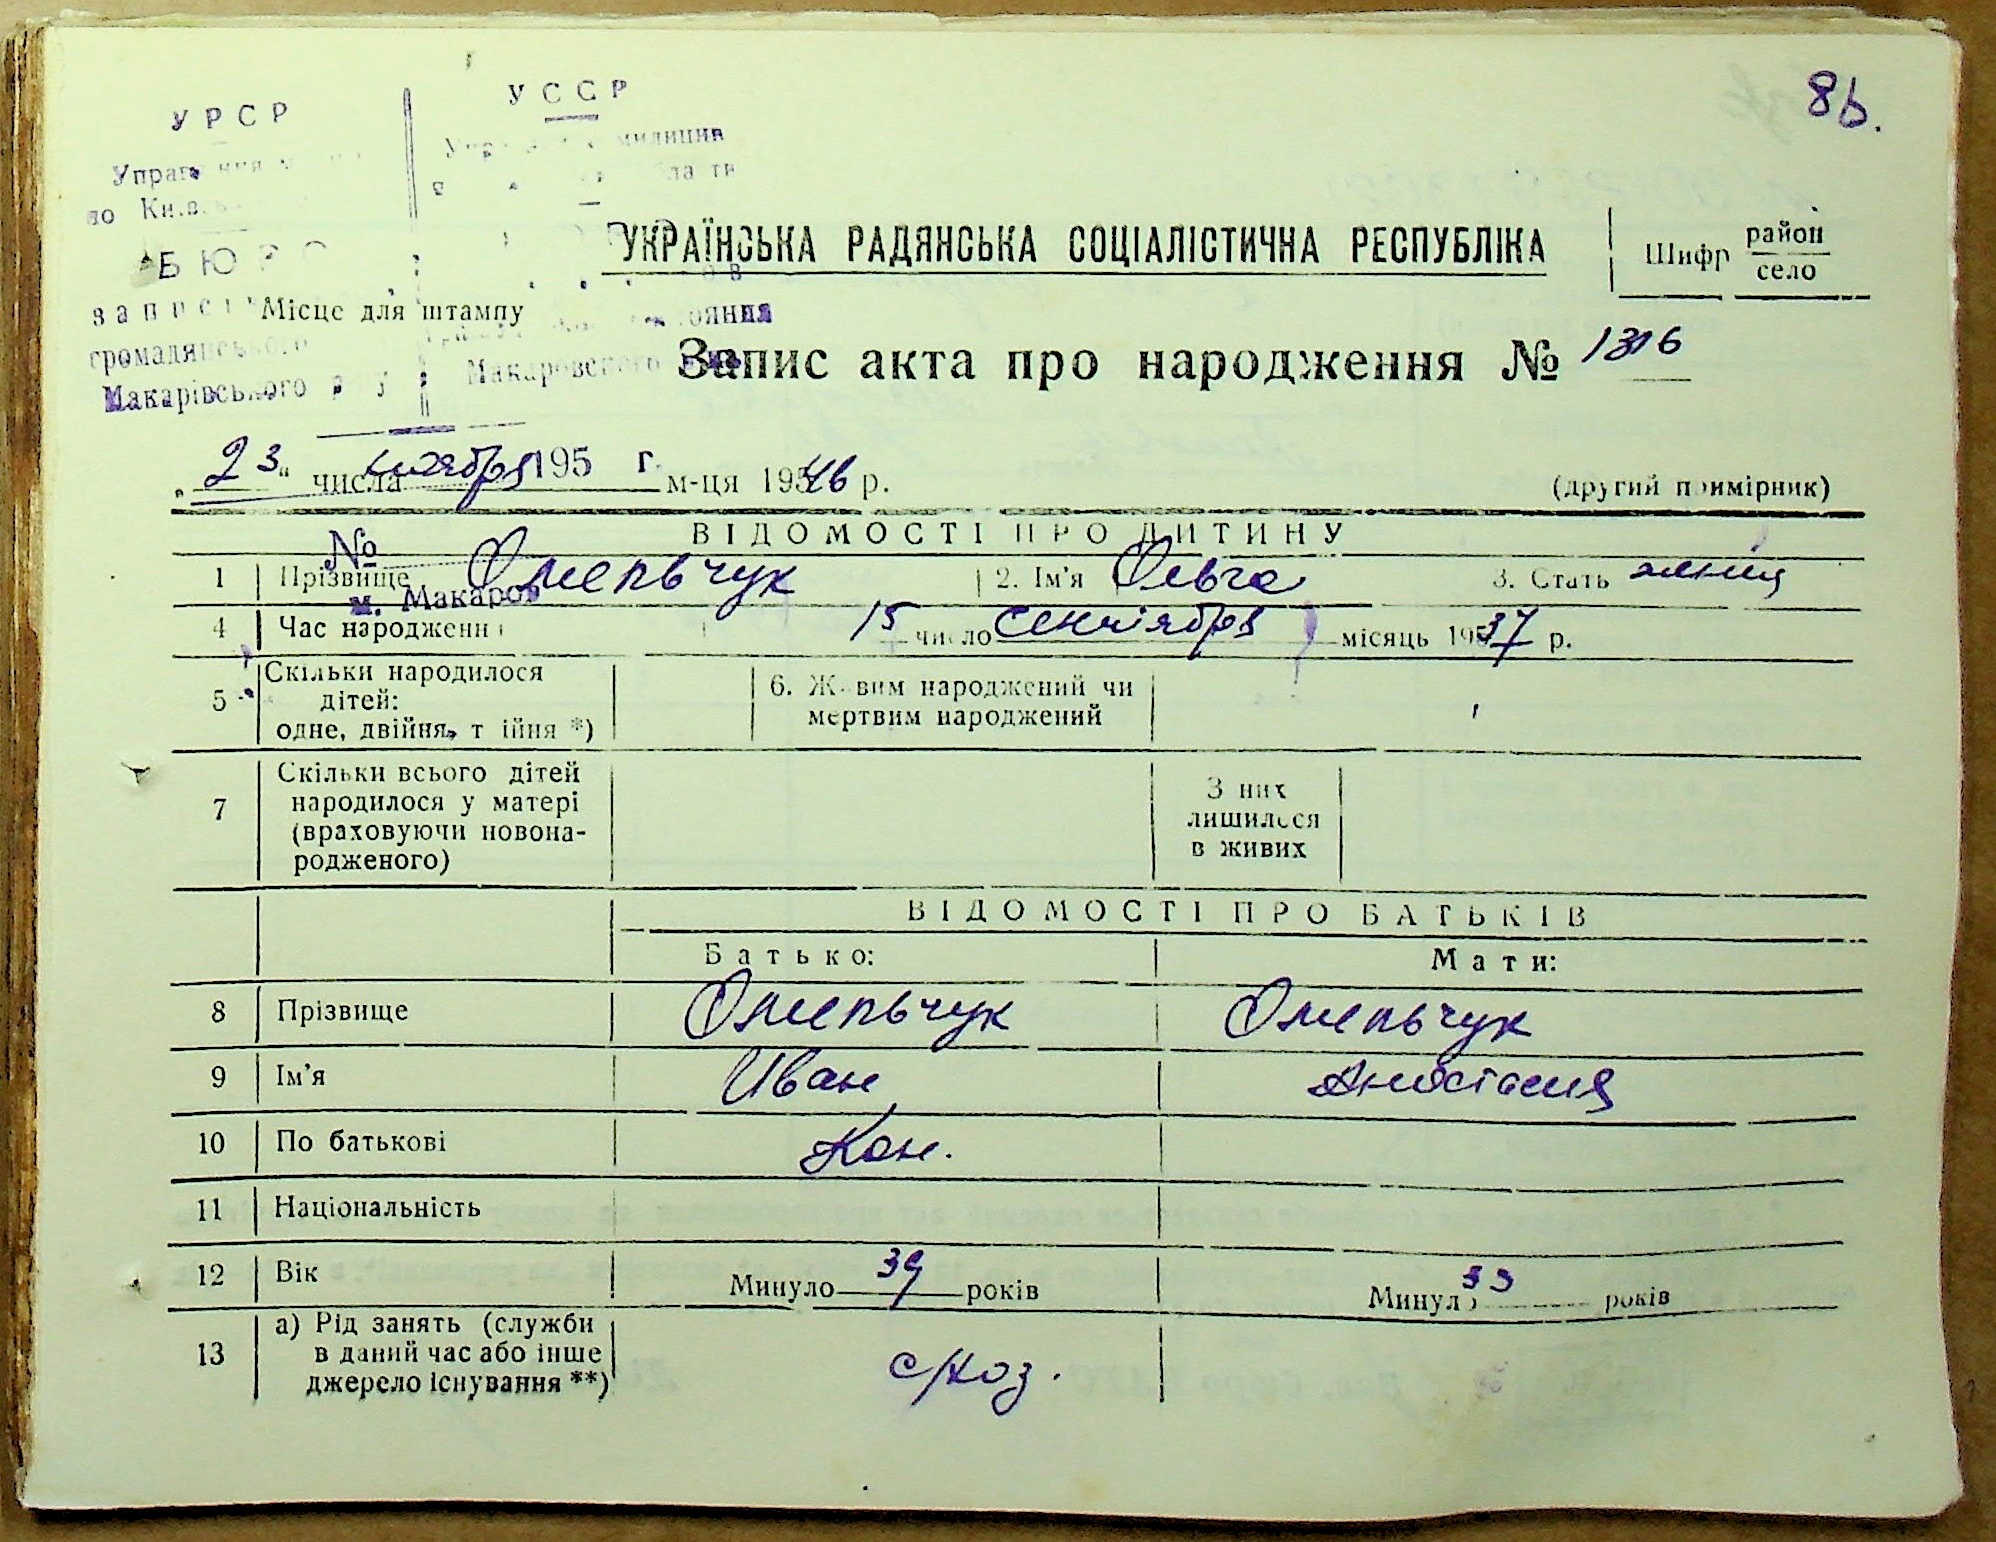 86.
УРСР
УССР
милиции
по
БЮРО
УКРАЇНСЬКА РАДЯНСЬКА СОЦІАЛІСТИЧНА РЕСПУБЛІКА
Шифр район
село
Місце для штампу
громадянського
Макарівського р у Макаровского
Запис акта про народження №
„23“ числа ноября 195 г. м-ця 1946 р.
(другий примірник)
ВІДОМОСТІ ПРО ДИТИНУ
№
1 Прізвище Омельчук 2. Ім'я Ольга 3. Стать
м. Макаров
4 Час народження 15 число сентября місяць 1937 р.
5 Скільки народилося
дітей:
одне, двійня, трійня *)
6. Живим народжений чи
мертвим народжений
7 Скільки всього дітей
народилося у матері
(враховуючи новона-
родженого)
З них
лишилося
в живих
ВІДОМОСТІ ПРО БАТЬКІВ
Батько: Мати:
8 Прізвище Омельчук Омельчук
9 Ім'я Иван Анастасия
10 По батькові Кон.
11 Національність
12 Вік Минуло 39 років Минуло 39 років
13 а) Рід занять (служби
в даний час або інше
джерело існування **)
с/хоз.